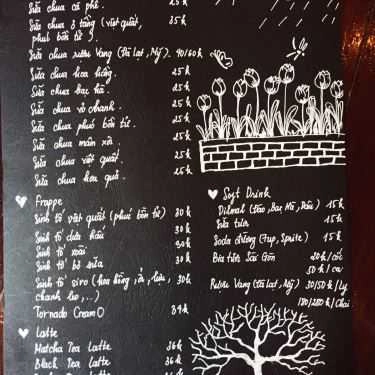 Sữa chua cà phê. 25k
Sữa chua 3 tầng (việt quất, 35k
phúc bồn tử).
Sữa chua rượu Vang (Đà lạt, Mỹ). 40/60k
Sữa chua hoa hồng. 25k
Sữa chua bạc hà. 25k
Sữa chua vỏ chanh. 25k
Sữa chua phúc bồn tử. 25k
Sữa chua mâm xôi. 25k
Sữa chua việt quất. 25k
Sữa chua hoa quả. 25k
Frappe
Sinh tố việt quất (phúc bồn tử) 30k
Sinh tố dưa hấu 30k
Sinh tố xoài 30k
Sinh tố bơ sữa 30k
Sinh tố siro (hoa hồng, 30k
chanh leo,...)
Tornado Cream 34k
Latte
Matcha Tea Latte 36k
Black Tea Latte 36k
Soft Drink
Dilmah (Đào, Bạc Hà, Dâu) 15k
Sữa tươi 15k
Soda đường (7up, Sprite) 15k
Bia tươi Sài Gòn 20k/cốc
50k/ca
Rượu Vang (Đà lạt, Mỹ) 30/50k/ly
180/280k/chai